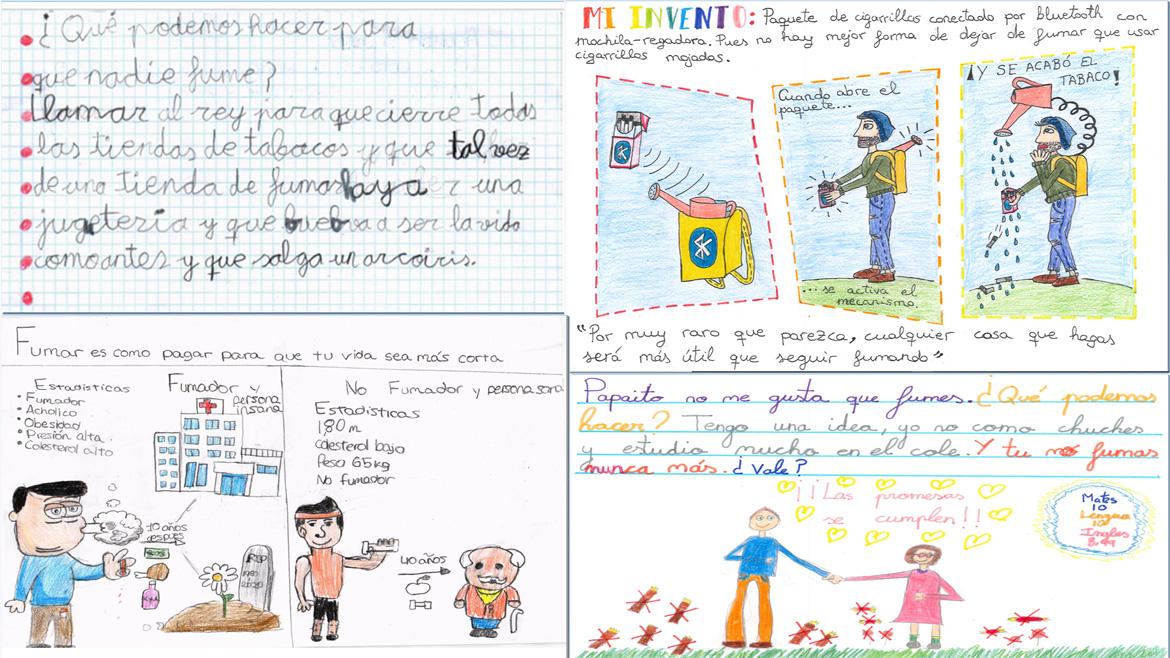 ¿Qué podemos hacer para
que nadie fume?
Llamar al rey para que cierre todas
las tiendas de tabacos y que tal vez
de una tienda de fumar haya una
jugeteria y que buebva a ser la vida
como antes y que salga un arcoiris.
MI INVENTO: Paquete de cigarrillos conectado por bluetooth con
mochila-regadora. Pues no hay mejor forma de dejar de fumar que usar
cigarrillos mojados.
Cuando abre el
paquete...
...se activa el
mecanismo.
¡Y SE ACABÓ EL
TABACO!
"Por muy raro que parezca, cualquier cosa que hagas
será más útil que seguir fumando"
Fumar es como pagar para que tu vida sea más corta
Estadísticas
• Fumador
• Acholico
• Obesidad
• Presión alta
• Colesterol alto
Fumador y
persona
insana
10 años
después
No Fumador y persona sana
Estadísticas
1,80 m
Colesterol bajo
Peso 65 kg
No fumador
40 años
Papaito no me gusta que fumes. ¿Qué podemos
hacer? Tengo una idea, yo no como chuches
y estudio mucho en el cole. Y tu no fumas
nunca más. ¿Vale?
¡¡¡Las promesas
se cumplen!!
Mates
10
Lengua
10
Ingles